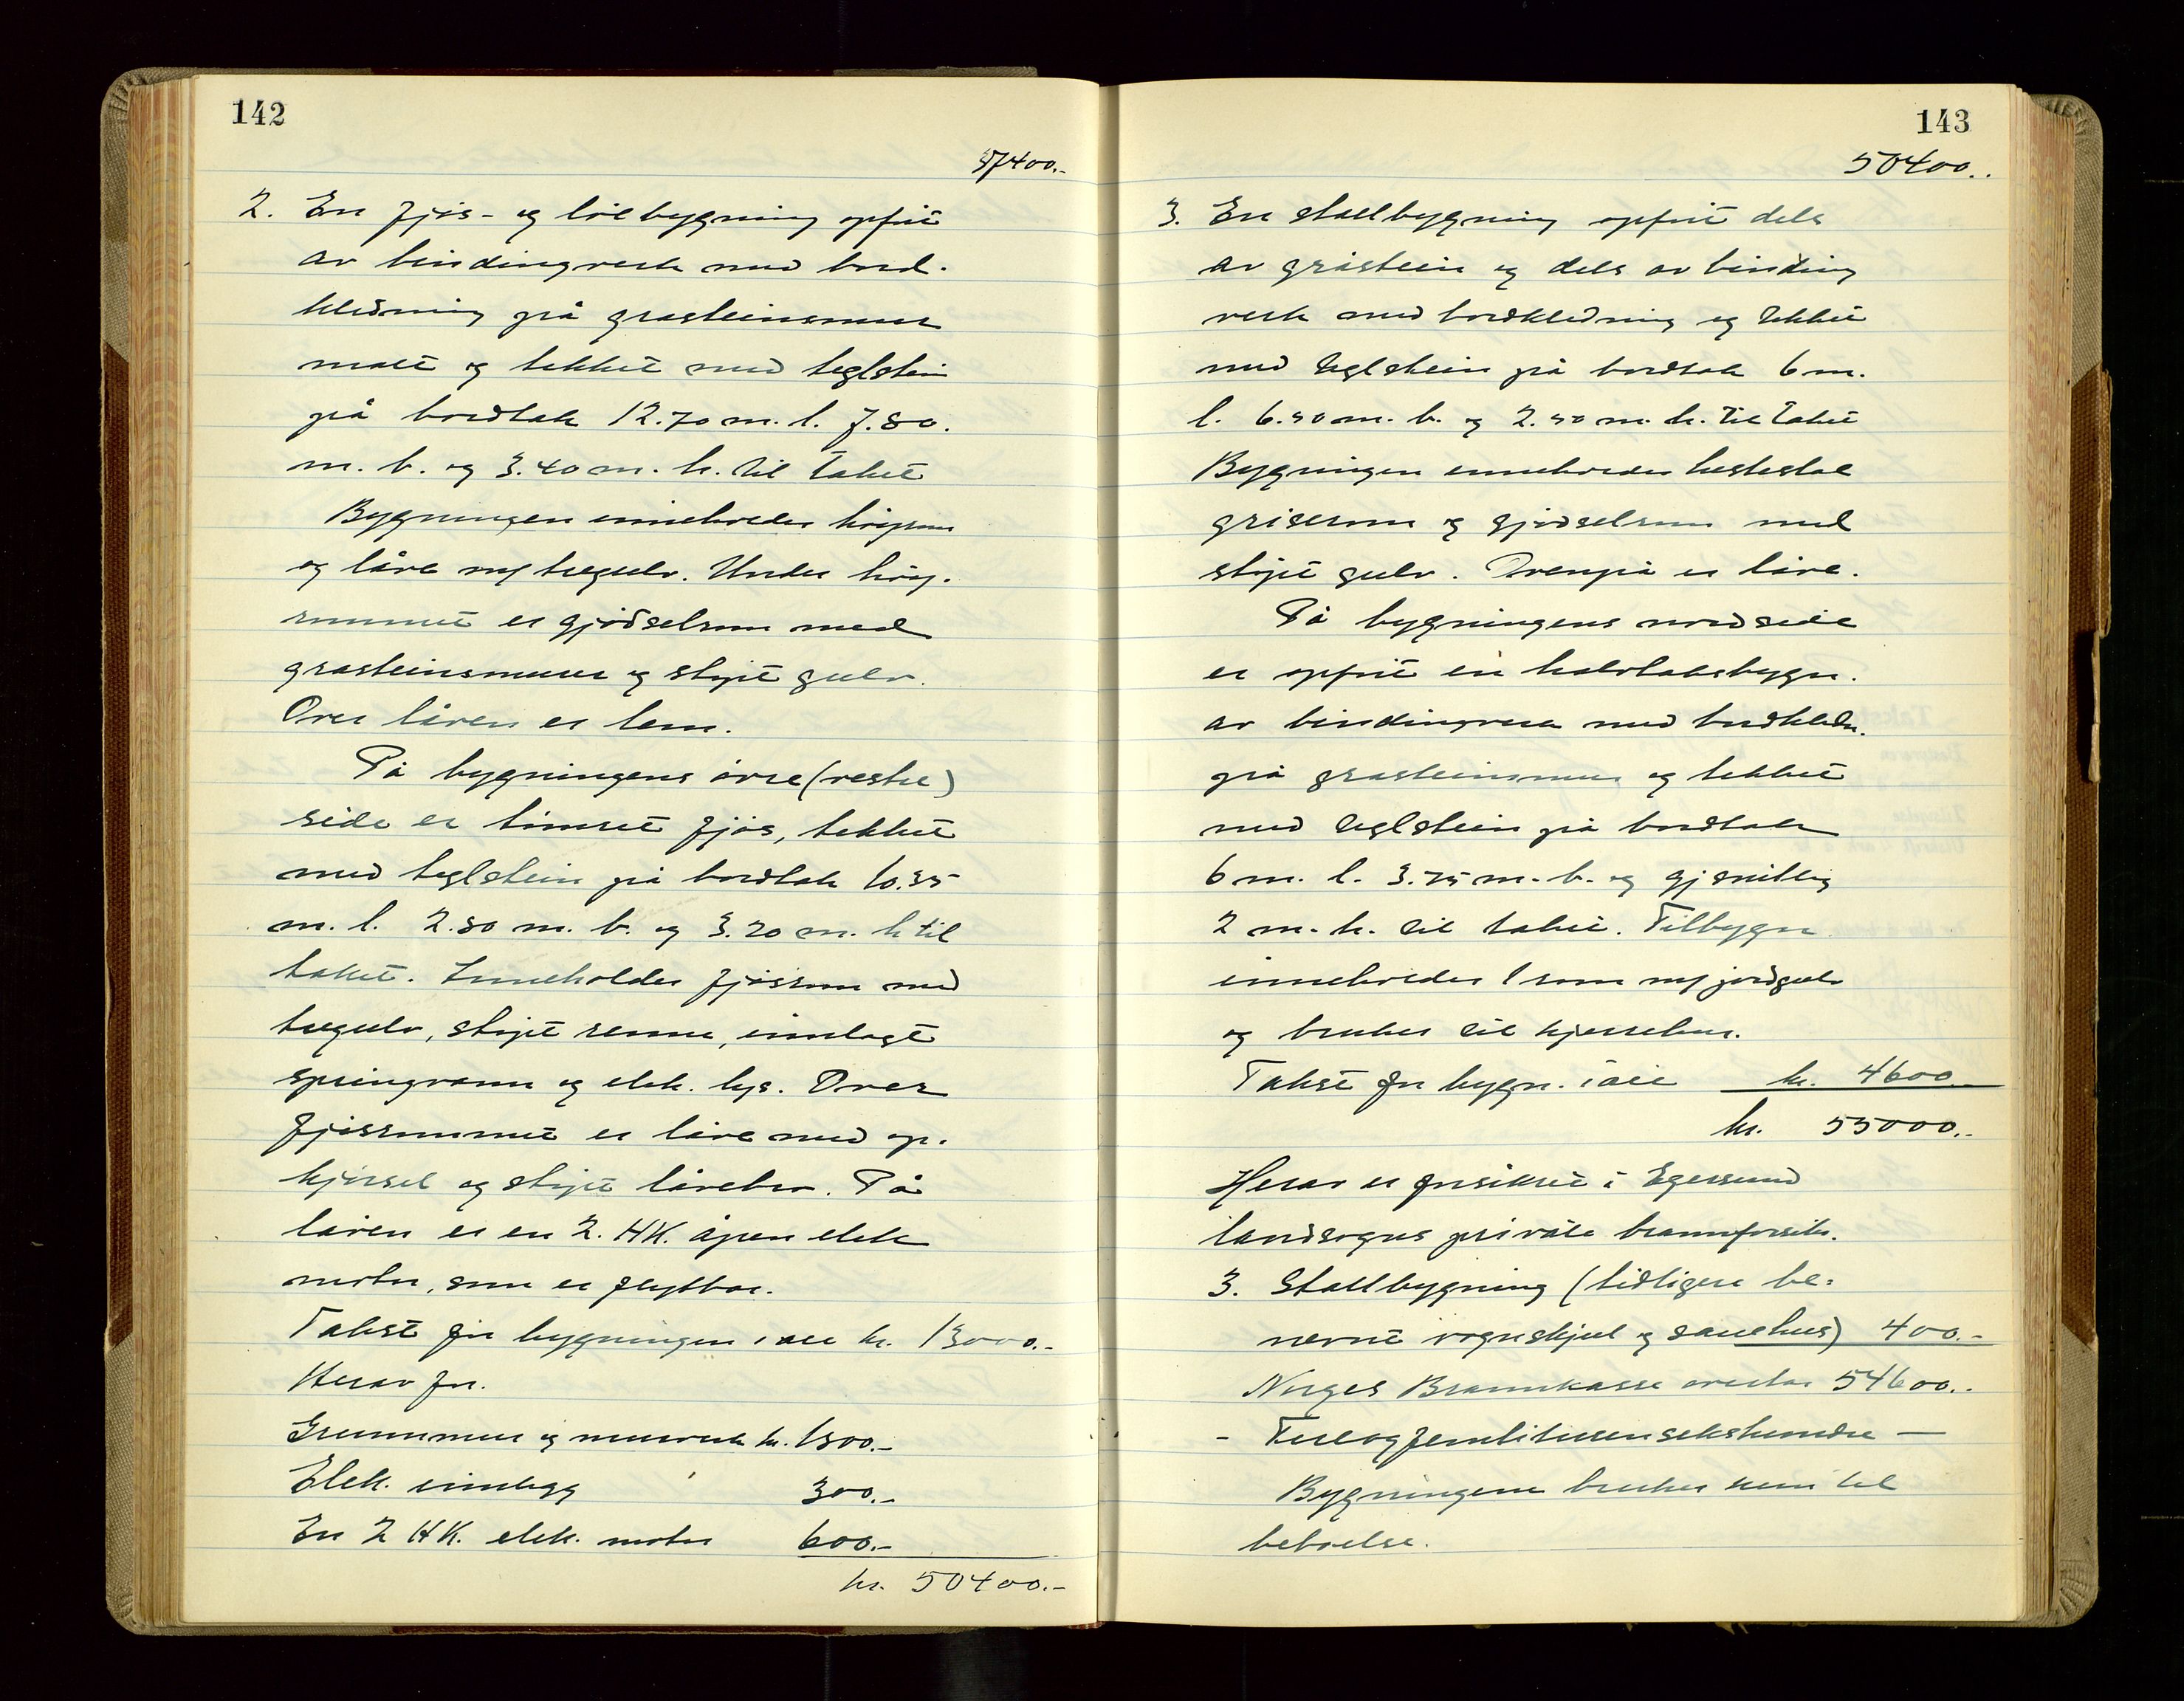 142
37400.-
2. En fjøs- og löebygning opført
av bindingverk med bord-
kledning på grasteinsmur
malt og tekket med teglstein
på bordtak 12.70 m. l. 7.80.
m. b. og 3.40 m. h. til taket
Bygningen inneholder höyrum
og låve m/ tregulv. Under höy-
rummet er gjödselrum med
grasteinsmurer og stöpt gulv.
Over låven er lem.
På bygningens övre (vestre)
side er timret fjös, tekket
med teglstein på bordtak 10.35
m. l. 2.80 m. b. og 3.20 m. h til
taket. Inneholder fjösrum med
tregulv, stöpt renne, innlagt
springvann og elek. lys. Over
fjösrummet er låve med op-
kjörsel og stöpt lårebro. På
låven er en 2. HK. åpen elek
motor, som er flyttbar.
Takst for bygningen i alt kr. 13000.-
Herav for.
Grunnmur og murverk kr. 1500.-
Elek. innlegg 300.-
En 2 HK. elek. motor 600.-
kr. 50400.-
143
50400.-
3. En stallbygning opført dels
av gråstein og dels av binding
verk med bordkledning og tekket
med teglstein på bordtak 6 m.
l. 6.50 m. b. og 2.50 m. h. til taket
Bygningen inneholder hestestal
griserum og gjödselrum med
stöpt gulv. Ovenpå er låve.
På bygningens nordside
er opført en halvtaksbygn.
av bindingverk med bordkledn.
på grasteinsmur og tekket
med teglstein på bordtak
6 m. l. 3.75 m. b. og gjsnitlig
2 m. h. til taket. Tilbygn
inneholder 1 rum m/ jordgulv
og brukes til kjerrehus.
Takst for bygn. i alt kr. 4600.-
kr. 55000.-
Herav er forsikret i Egersund
landsogns private brannforsikr.
3. Stallbygning (tidligere be-
nevnt vognskjul og sauehus) 400.-
Norges Brannkasse overtar 54600.-
- Fireogfemtitusensekshundre -
Bygningene brukes kun til
beboelse.